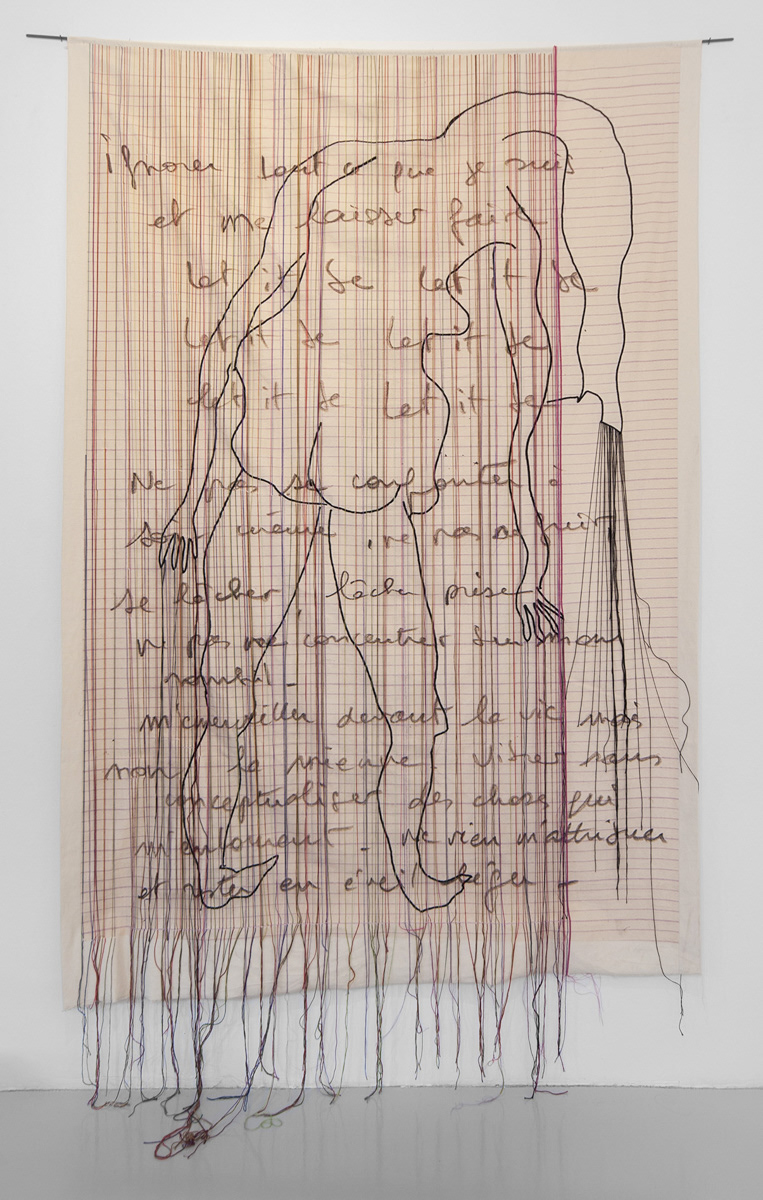 ignorer tout ce que je suis
et me laisser faire
let it be let it be
let it be let it be
let it be let it be
Ne pas se confronter à
soi même, ne pas se
se lâcher, lâcher prise
ne pas me concentrer sur mon
nombril -
m'émerveiller devant la vie mais
non la mienne. Vibrer sans
conceptualiser des choses qui
m'entourent - Ne rien m'attribuer
et rester en éveil léger -